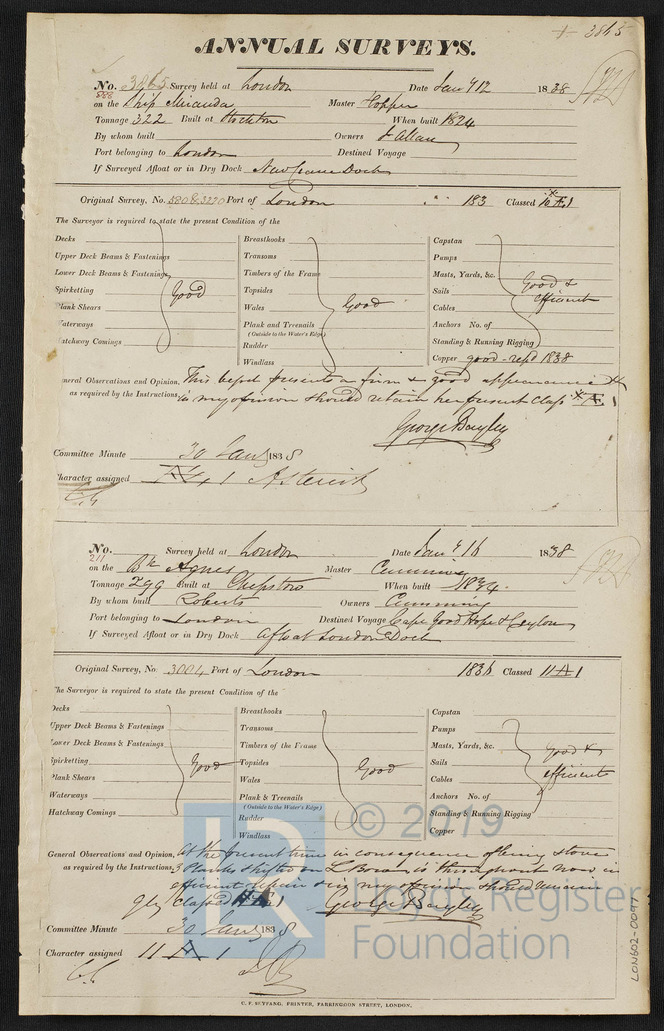 + 3865
ANNUAL SURVEYS.
No. 3865 Survey held at London Date Jany 12 1838
588
on the Ship Miranda Master Hopper
Tonnage 322 Built at Stockton When built 1824
By whom built Owners J Allan
Port belonging to London Destined Voyage
If Surveyed Afloat or in Dry Dock New Crane Dock
Original Survey, No. 580 & 3270 Port of London 183 Classed Æ 1
The Surveyor is required to state the present Condition of the
Decks Breasthooks Capstan
Upper Deck Beams & Fastenings Transoms Pumps
Lower Deck Beams & Fastenings Timbers of the Frame Masts, Yards, &c. Good &
Spirketting Good Topsides Sails efficient
Plank Shears Wales Good Cables
Waterways Plank and Treenails Anchors No. of
(Outside to the Water's Edge)
Hatchway Comings Rudder Standing & Running Rigging
Windlass Copper good - repd 1838
General Observations and Opinion, This vessel presents a firm & good appearance &
as required by the Instructions, in my opinion should retain her present Class * Æ 1
George Bayley
Committee Minute 30 Jany 1838
Character assigned Æ 1 Asterisk
No. Survey held at London Date Jany 16 1838
211
on the Bk Agnes Master Cumming
Tonnage 299 Built at Chepstow When built 1834.
By whom built Roberts Owners Cumming
Port belonging to London Destined Voyage Cape Good Hope & Ceylon
If Surveyed Afloat or in Dry Dock Afloat London Dock
Original Survey, No. 3004 Port of London 1836 Classed 11 A 1
The Surveyor is required to state the present Condition of the
Decks Breasthooks Capstan
Upper Deck Beams & Fastenings Transoms Pumps
Lower Deck Beams & Fastenings Timbers of the Frame Masts, Yards, &c. Good &
Spirketting Good Topsides Good Sails efficient
Plank Shears Wales Cables
Waterways Plank & Treenails Anchors No. of
(Outside to the Water's Edge)
Hatchway Comings Rudder Standing & Running Rigging
Windlass Copper
General Observations and Opinion, At the present time in consequence of being stove
as required by the Instructions, 3 Planks shifted on L Bow is throughout now in
efficient repair & in my opinion should remain
Classed A 1 George Bayley
Committee Minute 30 Jany 1838
Character assigned 11 A 1
C. F. SEYFANG, PRINTER, FARRINGDON STREET, LONDON.
LON602-0097
LR
© 2019
Lloyd's Register
Foundation